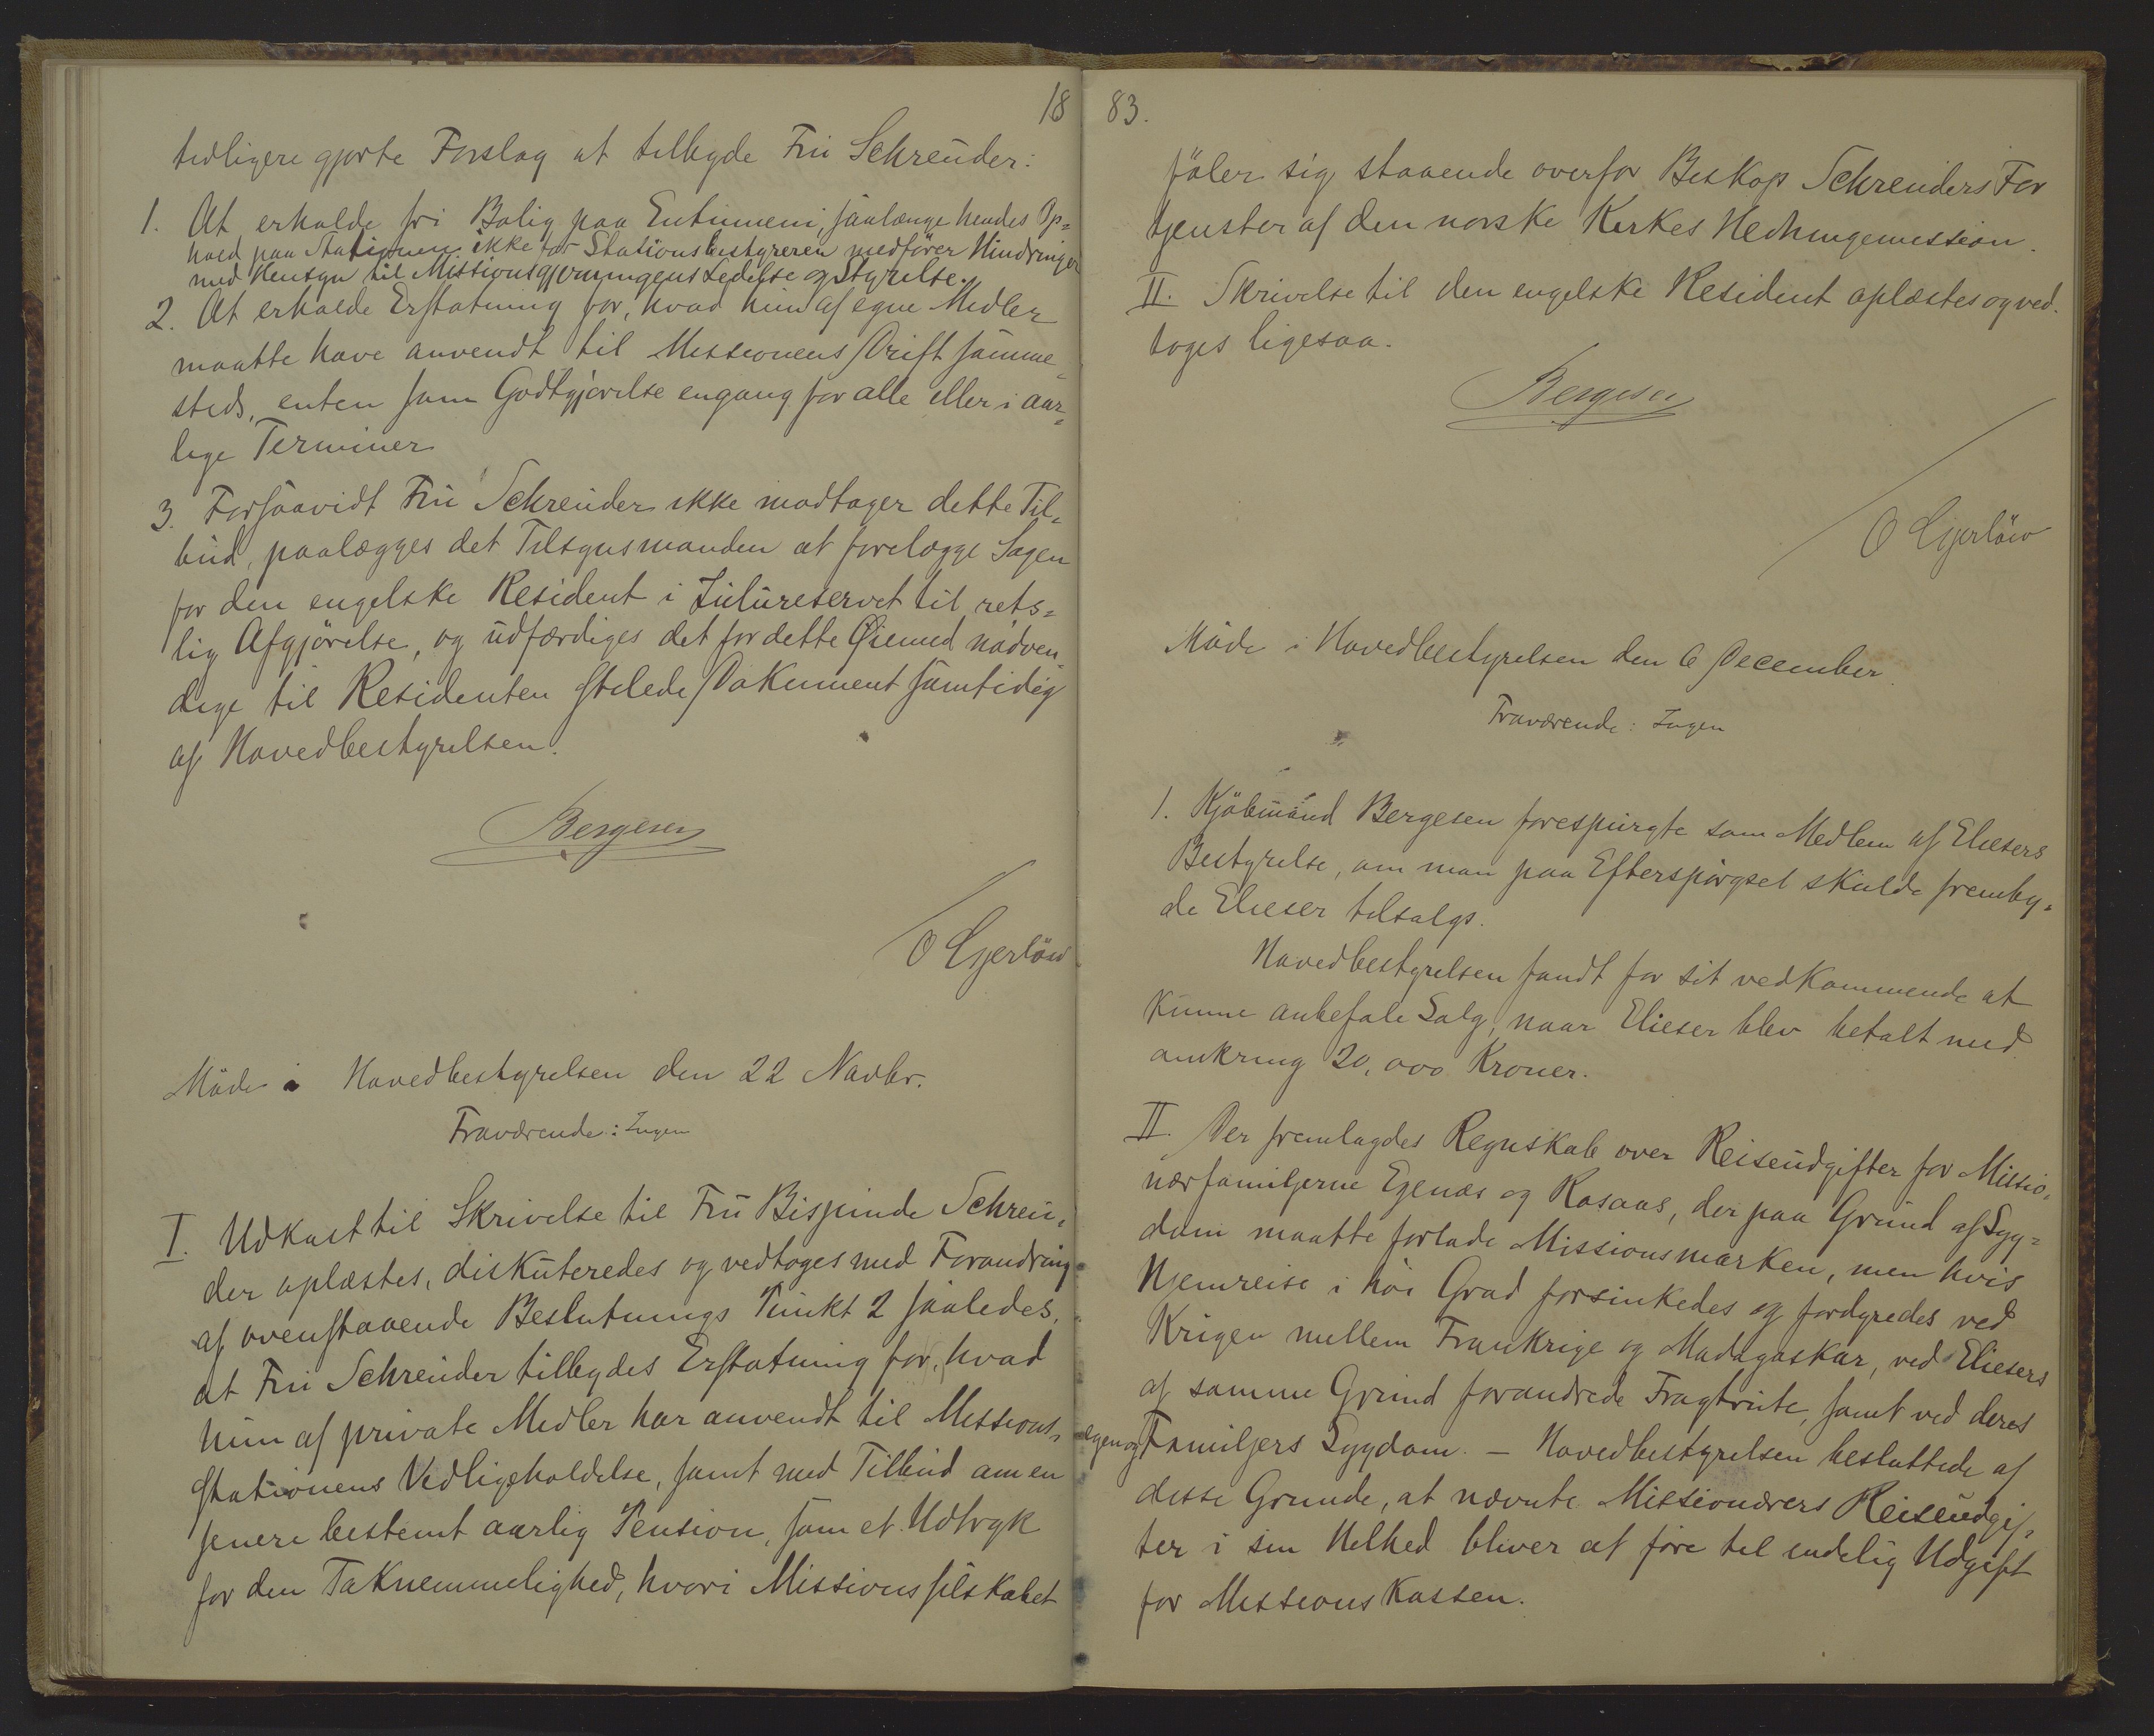 18
tidligere gjorte Forslag at tilbyde Fru Schreuder:
1. At erholde fri Bolig paa Entumeni, saalænge hendes Op=
hold paa Stationen ikke for Stationsbestyreren medfører Hindringer
med Hensyn til Missionsgjerningens Ledelse og Styrelse.
2. At erholde Erstatning for, hvad hun af egne Midler
maatte have anvendt til Missionens Drift samme=
steds, enten som Godtgjørelse engang for alle eller i aar=
lige Terminer
3. Forsaavidt Fru Schreuder ikke modtager dette Til=
bud, paalægges det Tilsynsmanden at forelægge Sagen
for den engelske Resident i Zulureservet til rets=
lig Afgjörelse, og udfærdiges det for dette Øiemed nödven=
dige til Residenten stilede Dokument samtidig
af Hovedbestyrelsen.
Bergesen
O Gjerlöw
Möde i Hovedbestyrelsen den 22 Novbr.
Fraværende: Ingen
I. Udkast til Skrivelse til Fru Bispinde Schreu=
der oplæstes, diskuteredes og vedtoges med Forandring
af ovenstaaende Beslutnings Punkt 2 saaledes,
at Fru Schreuder tilbydes Erstatning for, hvad
hun af private Midler har anvendt til Missions=
stationens Vedligeholdelse, samt med Tilbud om en
senere bestemt aarlig Pension, som et Udtryk
for den Taknemmelighed, hvori Missionsselskabet
83.
föler sig staaende overfor Biskop Schreuders For
tjenster af den norske Kirkes Hedningemission.
II. Skrivelse til den engelske Resident oplæstes og ved=
toges ligesaa.
Bergesen
O Gjerlöw
Möde i Hovedbestyrelsen den 6 December.
Fraværende: Ingen
1. Kjöbmand Bergesen forespurgte som Medlem af Eliesers
Bestyrelse, om man paa Efterspörgsel skulde fremby=
de Elieser tilsalgs.
Hovedbestyrelsen fandt for sit vedkommende at
kunne anbefale Salg, naar Elieser blev betalt med
omkring 20,000 Kroner.
II. Der fremlagdes Regnskab over Reiseudgifter for Missio=
nærfamiljerne Egenæs og Rosaas, der paa Grund af Syg=
dom maatte forlade Missionsmarken, men hvis
Hjemreise i höi Grad forsinkedes og fordyredes ved
Krigen mellem Frankrige og Madagaskar, ved Eliesers
af samme Grund forandrede Fragtrute, samt ved deres
egen og Familjers Sygdom. – Hovedbestyrelsen besluttede af
disse Grunde, at nævnte Missionærers Reiseudgif=
ter i sin Helhed bliver at före til endelig Udgift
for Missionskassen.